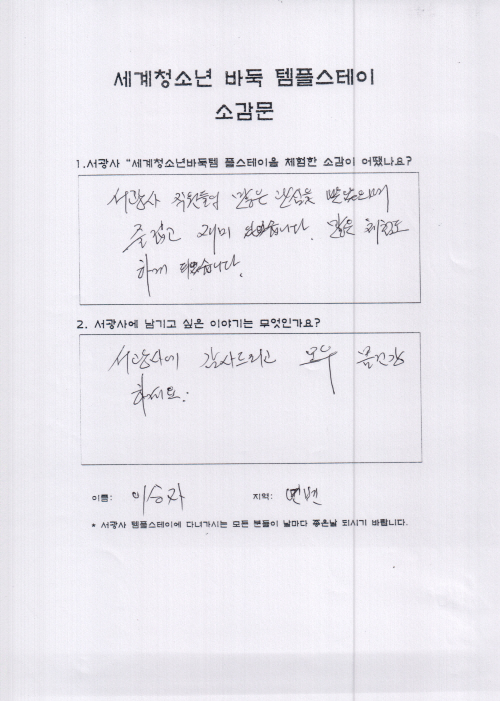 세계청소년 바둑 템플스테이
소감문
1.서광사 "세계청소년바둑템 플스테이을 체험한 소감이 어땠나요?
서광사 직원들의 많은 관심을 받았으며
즐겁고 재미 있었습니다. 많은 체험도
하게 되었습니다.
2. 서광사에 남기고 싶은 이야기는 무엇인가요?
서광사에 감사드리고 모두 몸건강
하세요.
이름: 이승자 지역: 연변
* 서광사 템플스테이에 다녀가시는 모든 분들이 날마다 좋은날 되시기 바랍니다.